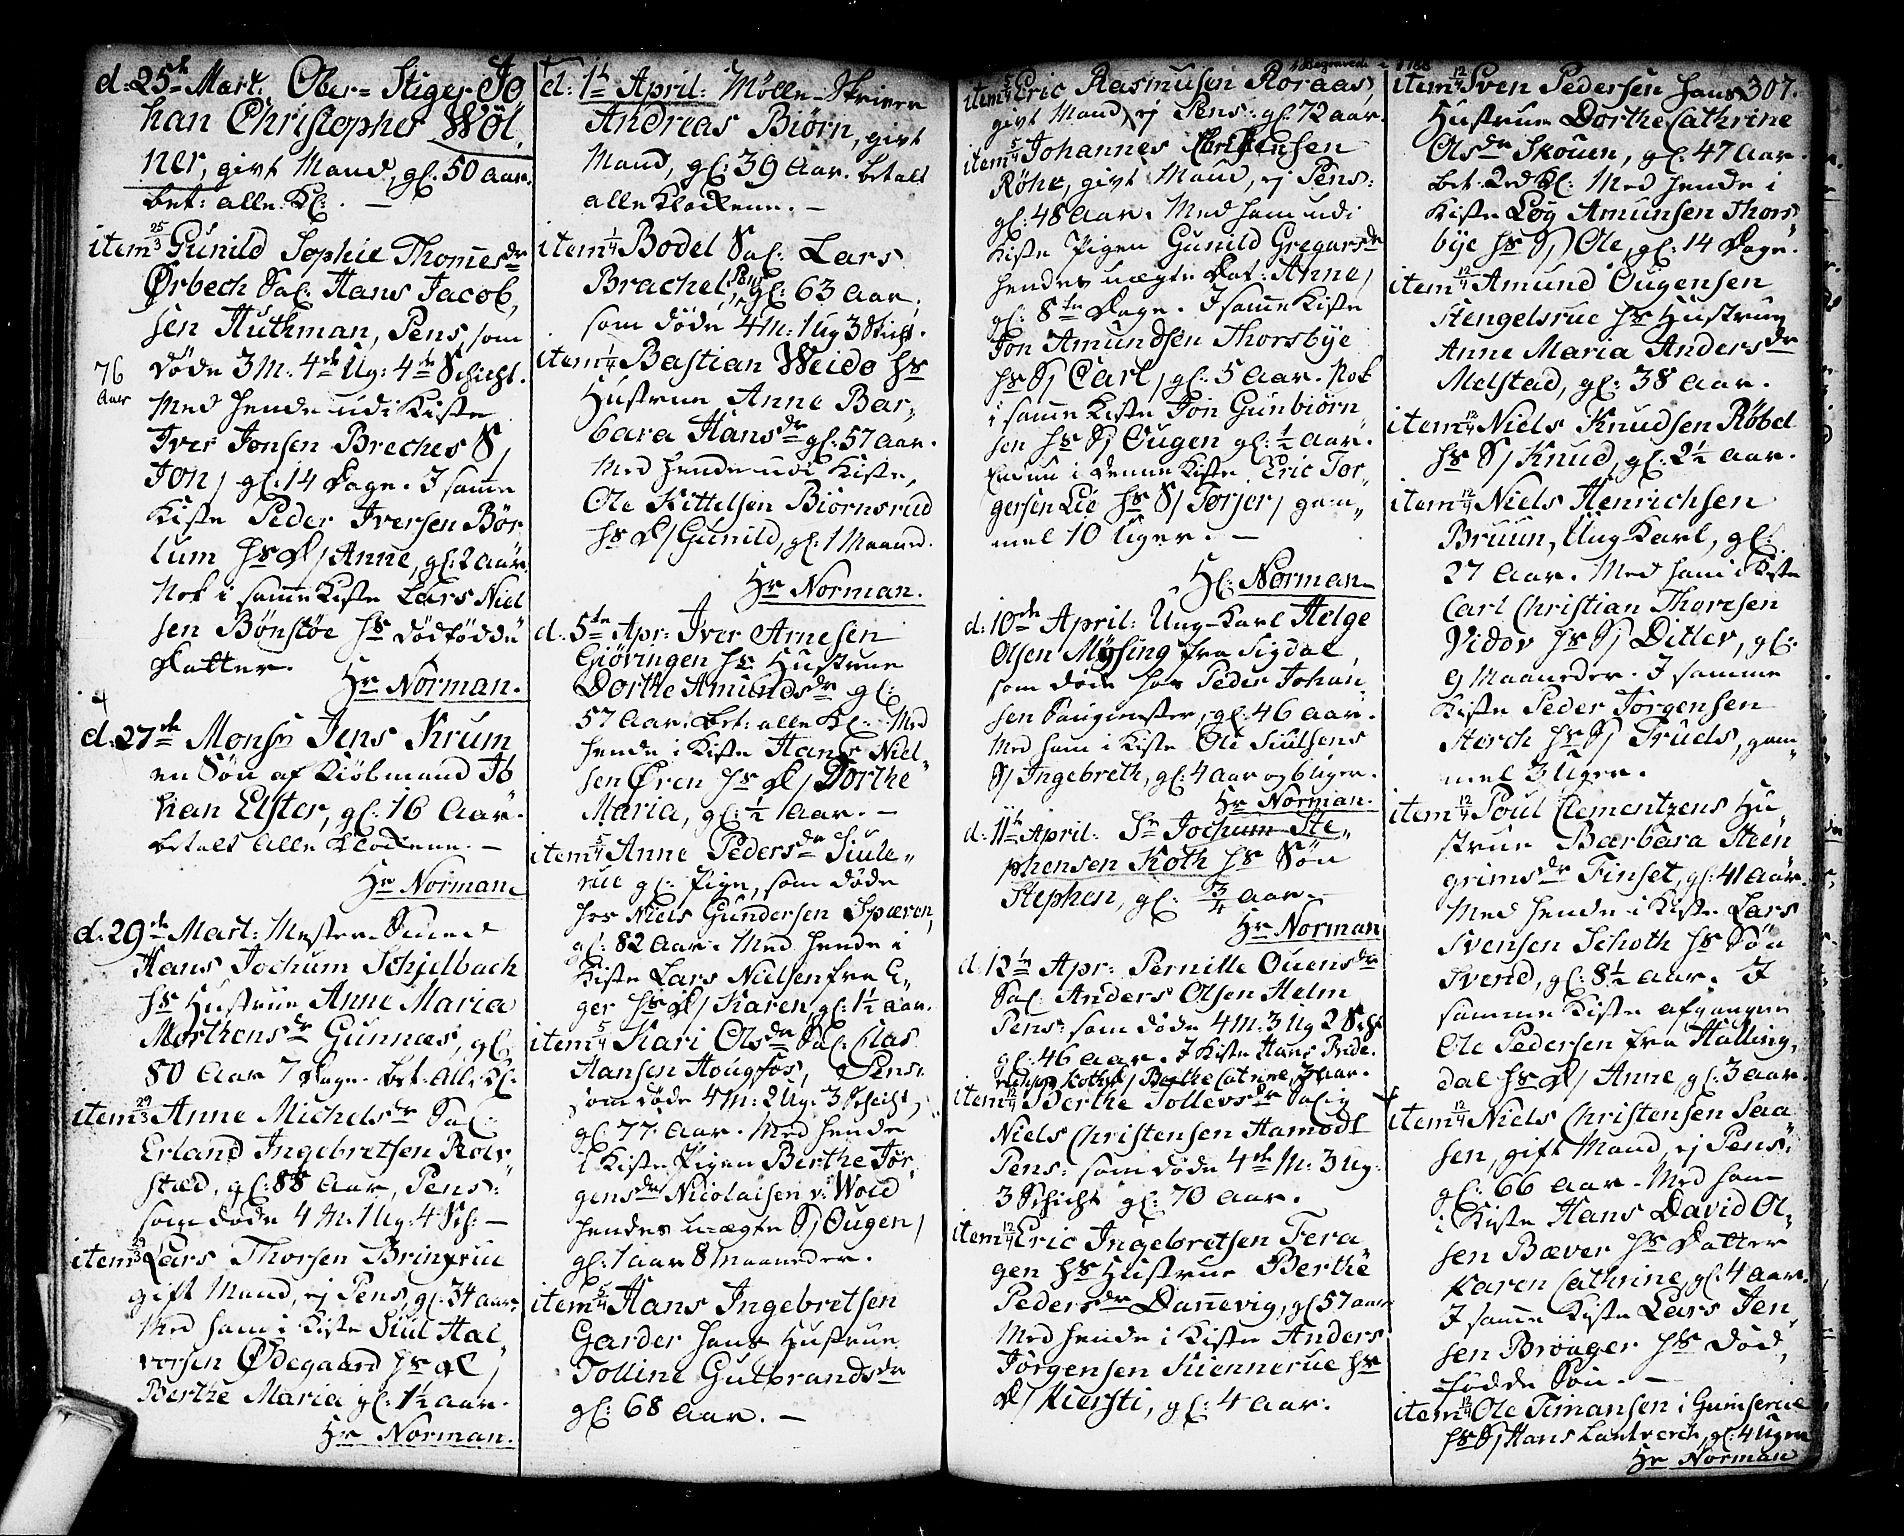 d: 25de Mart: Ober-Stiger Jo
han Christopher Wöl,,
ner, givt Mand, gl: 50 Aar.
bet: alle Kl: . —
item 25/3 Gunild Sophie Thomesdr
Ørbech Sal: Hans Jacob,
sen Huthman, Pens, som
76 døde 3 M. 4de Ug: 4de Schicht.
Aar
Med hende udi Kiste
Iver Jonsen Breches S/
Jon/ gl: 14 Dage. I samme
Kiste Peder Iversen Bør
lum hs D/ Anne, gl: 2 Aar.
Nok i samme Kiste Lars Niel
sen Bönsløe hs dødfödde
Datter.
Hr Norman.
d: 27de Monsr Jens Krum
en Søn af Kiöbmand Jo
han Elster, gl: 16 Aar.
betalt alle Klokkene. —
Hr Norman
d: 29de Mart: Mester Smed
Hans Jochum Schjelbach
hs Hustrue Anne Maria
Morthensdr Gunnæs, gl:
80 Aar 7 Dage. bet. alle Kl:
item 29/3 Anne Michelsdr Sal:
Erland Ingebretsen Rolv
stad, gl: 88 Aar, Pens:
som døde 4 M. 1 Ug: 4 Sch: —
item 29/3 Lars Thorsen Brinsrue
gift Mand, ej Pens, gl: 34 aar.
Med ham i Kiste Siul Hal
vorsen Ødegaard hs D/
Berthe Maria gl: 1½ Aar.
Hr Norman.
d: 1te April: Mølle-Skriver
Andreas Biørn, givt
Mand, gl: 39 Aar. betalt
alle Klokkene. —
item 1/4 Bodel Sal: Lars
Brachel, Pens gl: 63 Aar,
som døde 4 M: 1 Ug 3 Schicht.
item 1/4 Bastian Weido hs
Hustrue Anne Bar,
bara Hansdr gl: 57 Aar.
Med hende udi Kiste,
Ole Kittelsen Biörnsrud
hs D/ Gunild, gl: 1 Maaned.
Hr Norman.
d: 5te Apr: Iver Arnesen
Giövingen hs Hustrue
Dorthe Amundsdr gl:
57 Aar. bet: alle Kl: Med
hende i Kiste Hans Niel
sen Ören hs D/ Dorthe
Maria, gl: ½ Aar. —
item 5/4 Anne Pedersdr Siule,,
rue gl: Pige, som døde
hos Niels Gundersen Spæren,
gl: 82 Aar. Med hende i
Kiste Lars Nielsen fra E,,
ger hs D/ Karen, gl: 1½ Aar.
item 5/4 Kari Olsdr Sal: Clas
Hansen Hougfos, Pens:
som døde 4 M: 2 Ug: 3 Schicht,
gl: 77 Aar. Med hende
i Kiste Pigen Berthe Jör
gensdr Nicolaisen v: Woid
hendes u-ægte S/ Ougen/
gl: 1 aar 8 maaneder.
item 5/4 Hans Ingebretsen
Garder hans Hustrue
Tolline Gulbrandsdr
gl: 68 Aar. —
Begravede i 1788
item 5/4 Eric Rasmusen Roraas,
givt Mand, ej Pens: gl: 72 aar.
item 5/4 Johannes Christensen
Röhr, givt Mand, ej Pens:
gl: 48 Aar. Med ham udi
Kiste Pigen Gunild Gregarsdr
hendes uægte Dat: Anne,
gl: 8te Dage. I samme Kiste
Jon Amundsen Thorsbye
hs S/ Carl, gl: 5 Aar. Nok
i samme Kiste Jon Gunbiörn
sen hs S/ Ougen gl: ½ Aar.
Endnu i denne Kiste Eric Tor,,
gersen Lie hs S/ Torjer/ gam,,
mel 10 Uger. —
Hr: Norman
d: 10de April: Ung-Karl Helge
Olsen Mysing fra Sigdal
som døde hos Peder Johan,
sen Saugmester, gl: 46 Aar.
Med ham i Kiste Ole Siulsens
S/ Ingebreth, gl: 4 Aar og 6 Uger.
Hr Norman.
d: 11te April: Sr Jochum Ste,,
phensen Koth hs Søn
Stephen, gl: ¾ Aar. —
Hr Norman
d: 12te Apr: Pernille Ouensdr
Sal: Anders Olsen Helm
Pens: som døde 4 M. 3 Ug 2 Sch:
gl: 46 Aar. I Kiste Hans Fride
richs: Koths D/ Berthe Catrine, 3 Aar.
item 12/4 Berthe Tollevsdr Salig
Niels Christensen Hamodt
Pens: som døde 4de M: 3 Ug:
3 Schicht gl: 70 Aar.
item 12/4 Eric Ingebretsen Fera
gen hs Hustrue Berthe
Pedersdr Dannevig, gl 57 aar
Med hende i Kiste Anders
Jörgensen Skiennerue hs
D/ Kiersti, gl: 4 Aar.
307.
item 12/4 Sven Pedersen hans
Hustrue Dorthe Cathrine
Olsdr Skouen, gl: 47 Aar.
bet. 2ed Kl: Med hende i
Kiste Loy Amunsen Thors
bye hs S/ Ole, gl: 14 Dage.
item 12/4 Amund Ougensen
Stengelsrue hs Hustrue
Anne Maria Andersdr
Melstad, gl: 38 Aar.
item 12/4 Niels Knudsen Röbel
hs S/ Knud, gl: 2½ Aar.
item 12/4 Niels Henrichsen
Bruun, Ung-Karl, gl:
27 Aar. Med ham i Kiste
Carl Christian Thoresen
Vidov hs S/ Ditlev, gl:
9 Maaneder. I samme
Kiste Peder Jörgensen
Storch hs S/ Truels, gam,,
mel 3 Uger.
item 12/4 Poul Clementzens Hu
strue Barbara Steen
grimsdr Finset, gl: 41 Aar.
Med hende i Kiste Lars
Svensen Schoth hs Søn
Svend, gl: 8½ Aar. I
samme Kiste afgangne
Ole Pedersen fra Halling,
dal hs D/ Anne, gl: 3 Aar.
item 12/4 Niels Christensen Paa
sen, gift Mand, ej Pens:
gl: 66 Aar. Med ham
i Kiste Hans David Ol,
sen Bæver hs Datter
Karen Cathrine, gl: 4 Aar.
I samme Kiste Lars Jen
sen Brouger hs Død,
fødde Søn. —
item 12/4 Ole Simansen i Gumserue
hs S/ Hans Lautverch, gl: 4 Ugen
Hr Norman